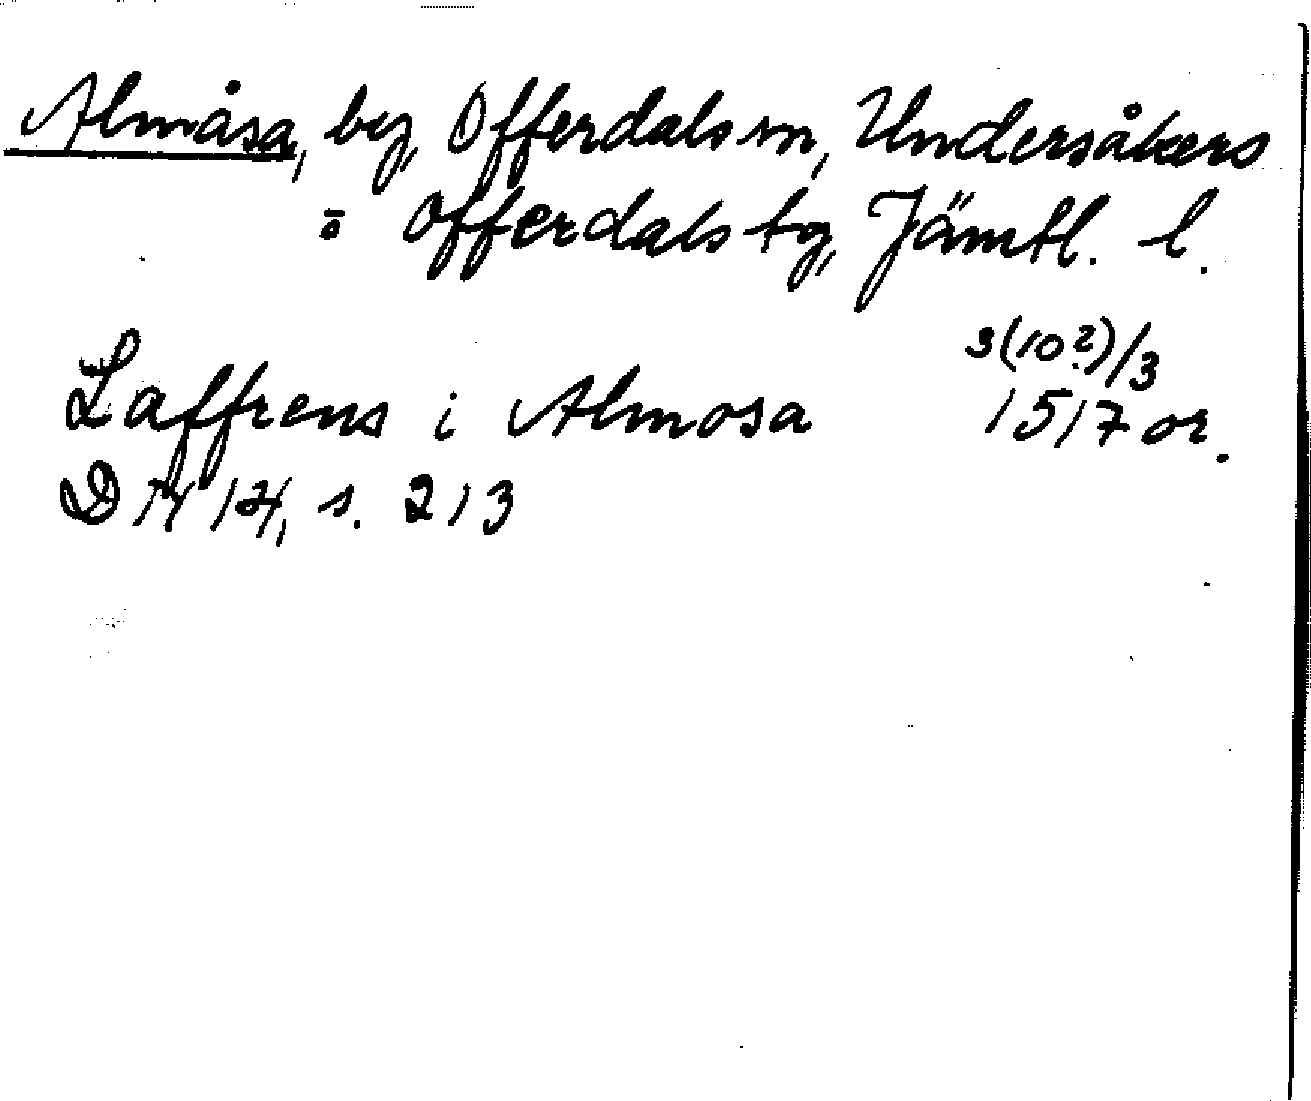 Almåsa, by, Offerdals sn, Undersåkers
o Offerdals tg, Jämtl. l.
3(10?)/3
Laffrens i Almosa 1517 or.
DN 14, s. 213